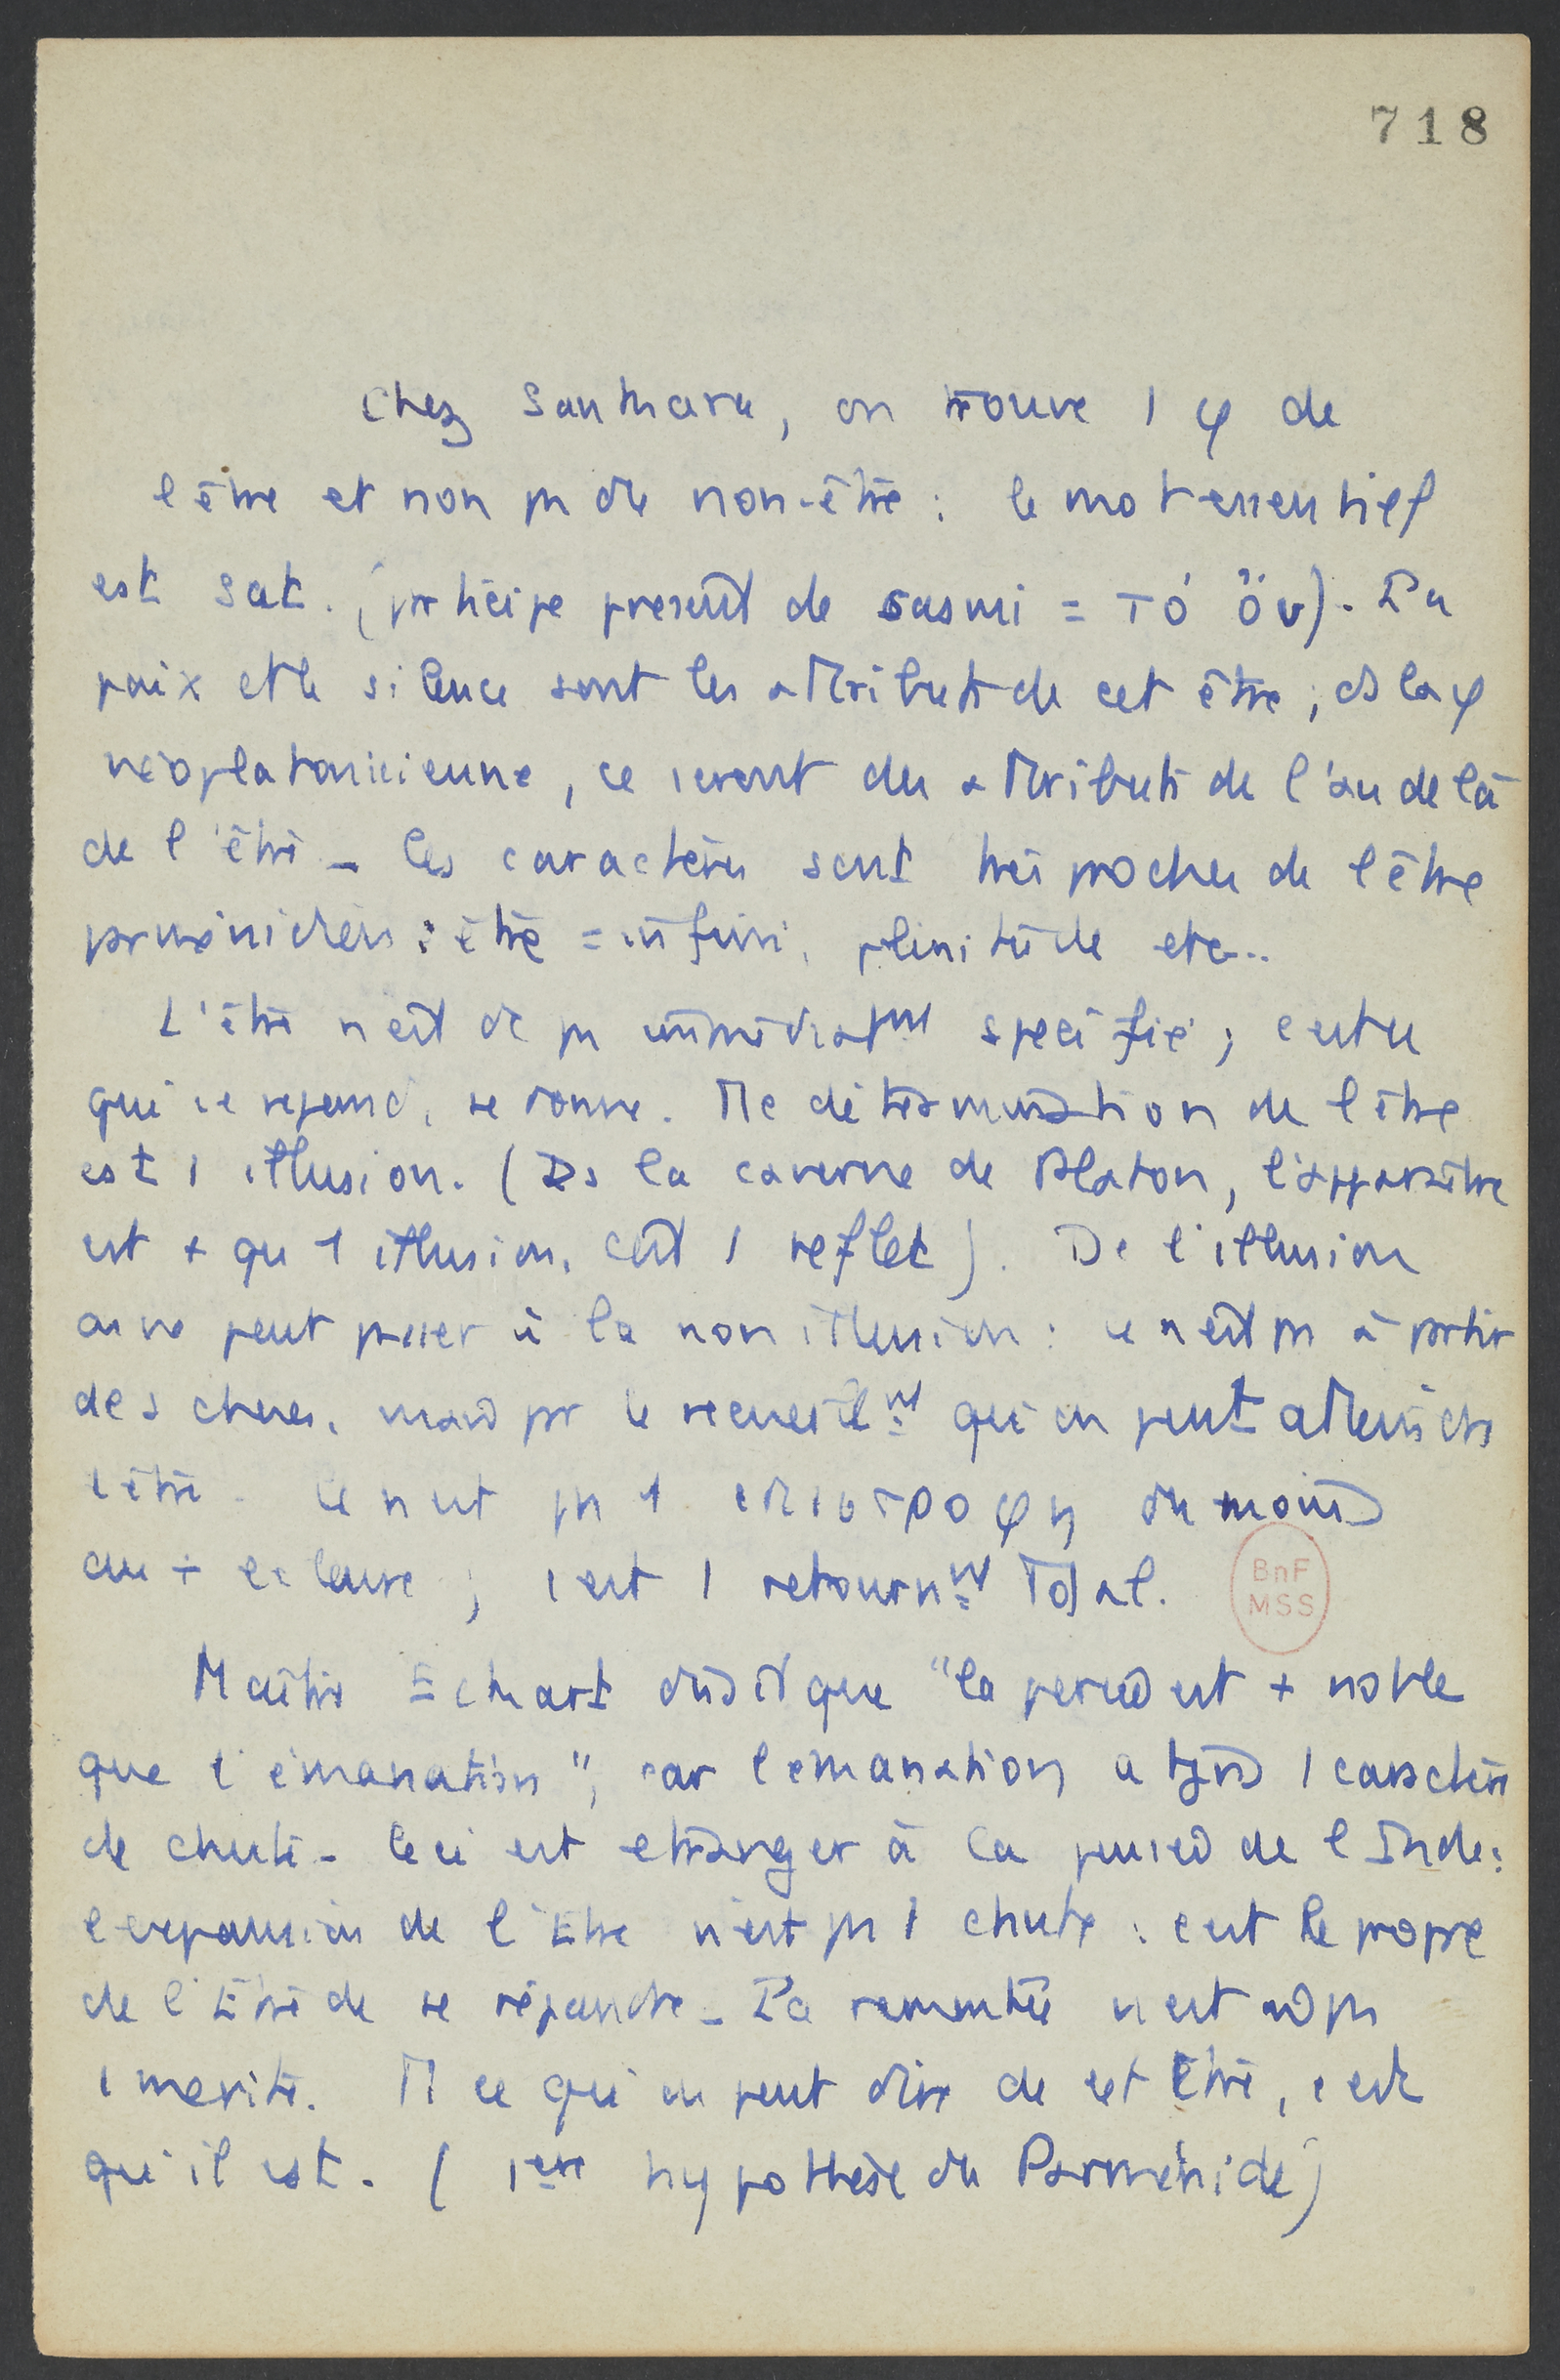 718
Chez Sankara, on trouve 1 φ de
l'être et non ps du non-être : le mot essentiel
est sat. (prticipe present de sasmi = τό ὄν). La
paix et le silence sont les attributs de cet être ; ds la φ
néoplatonicienne, ce seront des attributs de l'au delà
de l'être _ les caractères sont très proches de l'être
prmenidien : être = infini, plenitude etc..
L'être n'est dc ps immediatmt specifié ; c'est ce
qui se repand, se donne. Tte determination de l'être
est 1 illusion. (Ds la caverne de Platon, l'apparaître
est + qu'1 illusion, c'est 1 reflet). De l'illusion
on ne peut passer à la non illusion : ce n'est ps à prtir
des choses, mais pr le recueillmt qu'on peut atteindre
l'être. Ce n'est ps 1 επιστροφη du moins
au + ; c'est 1 retournmt Total.
Maître Eckart disait que "la percée est + noble
que l'émanation", car l'emanation a tjrs 1 caractère
de chute _ Ceci est etranger à la pensée de l'Inde :
l'expansion de l'Etre n'est ps 1 chute : c'est le propre
de l'Etre de se répandre _ La remontée n'est ps
1 merite. Tt ce qu'on peut dire de cet Etre, c'est
qu'il est. ( 1ere hypothèse du Parménide)
BnF
MSS